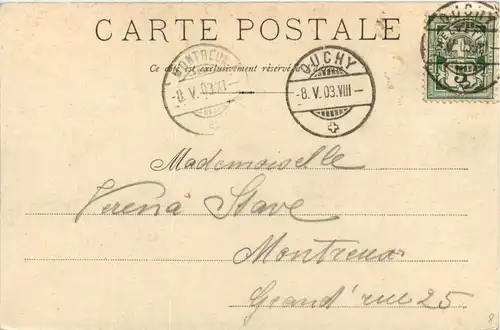 CARTE POSTALE
Ce côté est exclusivement réservé à l'adresse
MONTREUX
-8. V. 03. XI-
OUCHY
-8. V. 03. VIII-
OUCHY
5
Mademoiselle
Verena Stave
Montreux
Grand' rue 25.